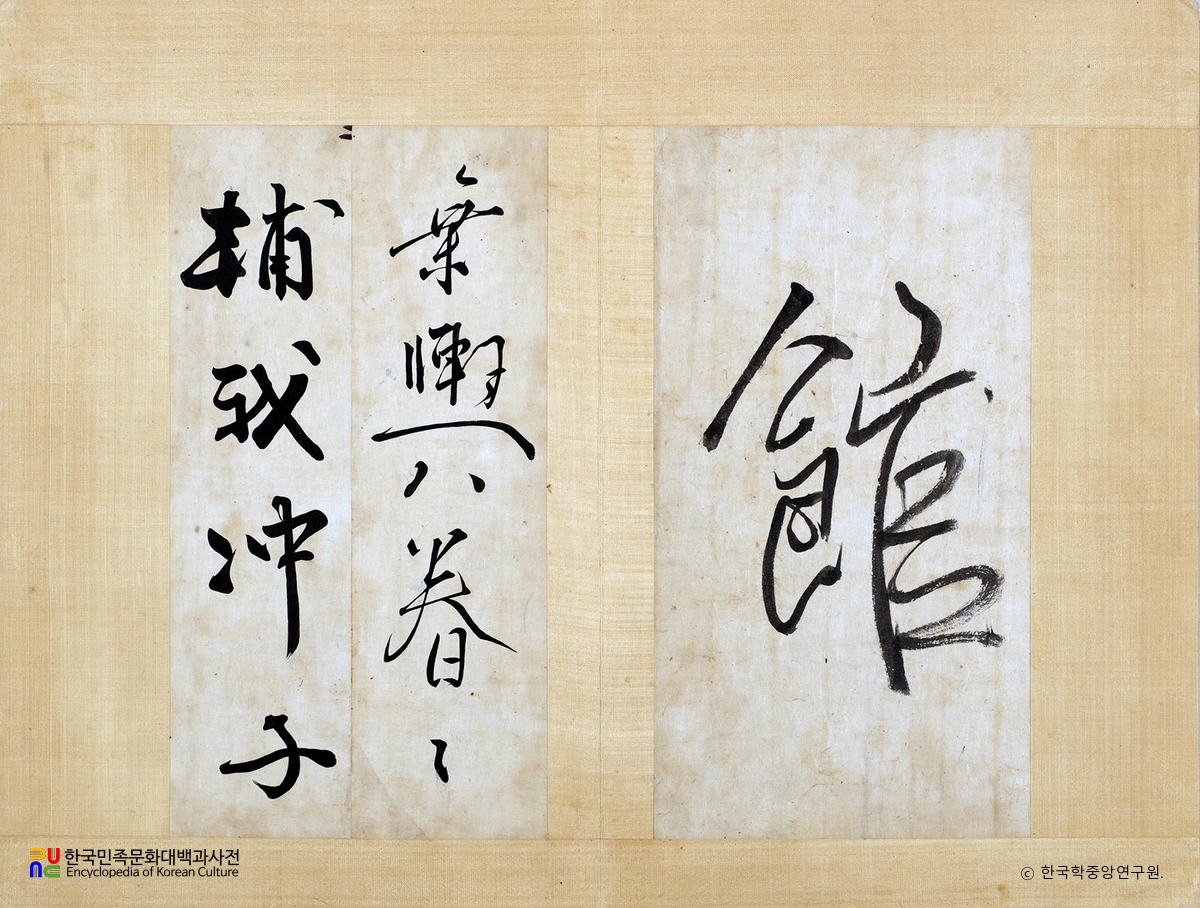 館
輿眷〻
輔我冲子
한국민족문화대백과사전
Encyclopedia of Korean Culture
ⓒ 한국학중앙연구원.